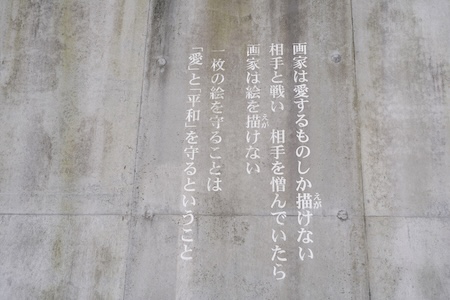 画家は愛するものしか描けない
相手と戦い 相手を憎んでいたら
画家は絵を描けない
一枚の絵を守ることは
「愛」と「平和」を守るということ